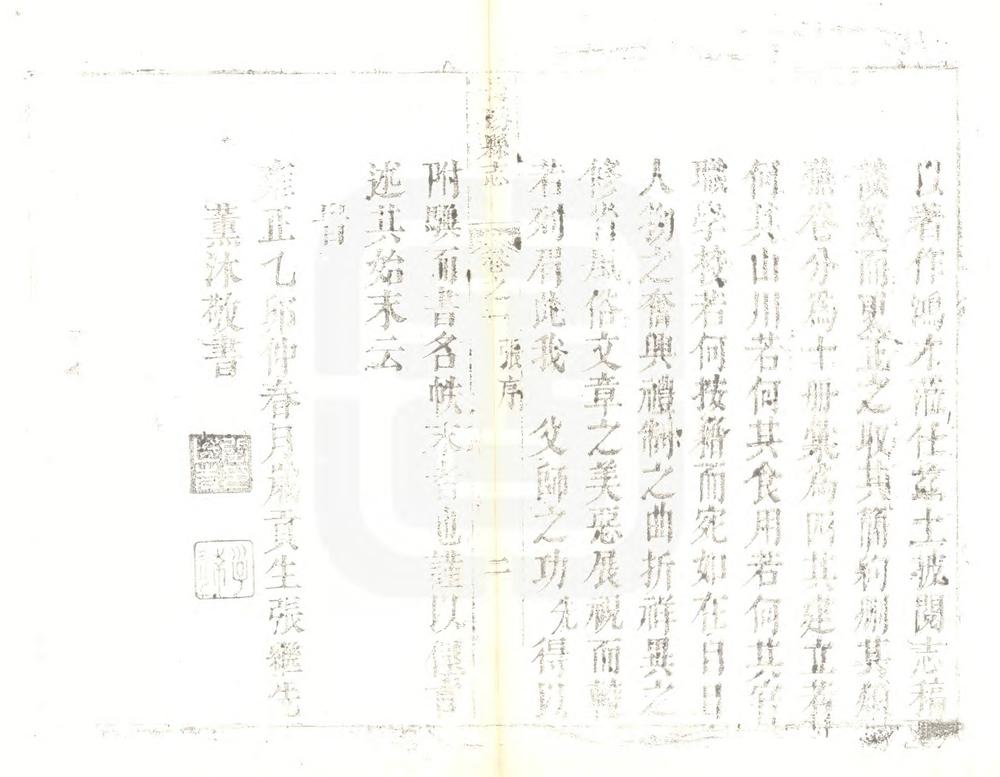 以著作鴻才蒞任茲土披閱志稿
幾而更金之取其簡約刪其煩
卷分為十冊彙為四其建立若
何其山川若何其食用若何其官
職學校若何按籍而宛如在目
人物之奮興禮制之曲折祥異之
修省風俗文章之美惡展視而
若列眉此我 父師之功允得以
縣志 卷之一 張序 二
附驥而書名帙末者也謹以俚言
述其始末云
旹
雍正乙卯仲春月歲貢生張繼先
薰沐敬書